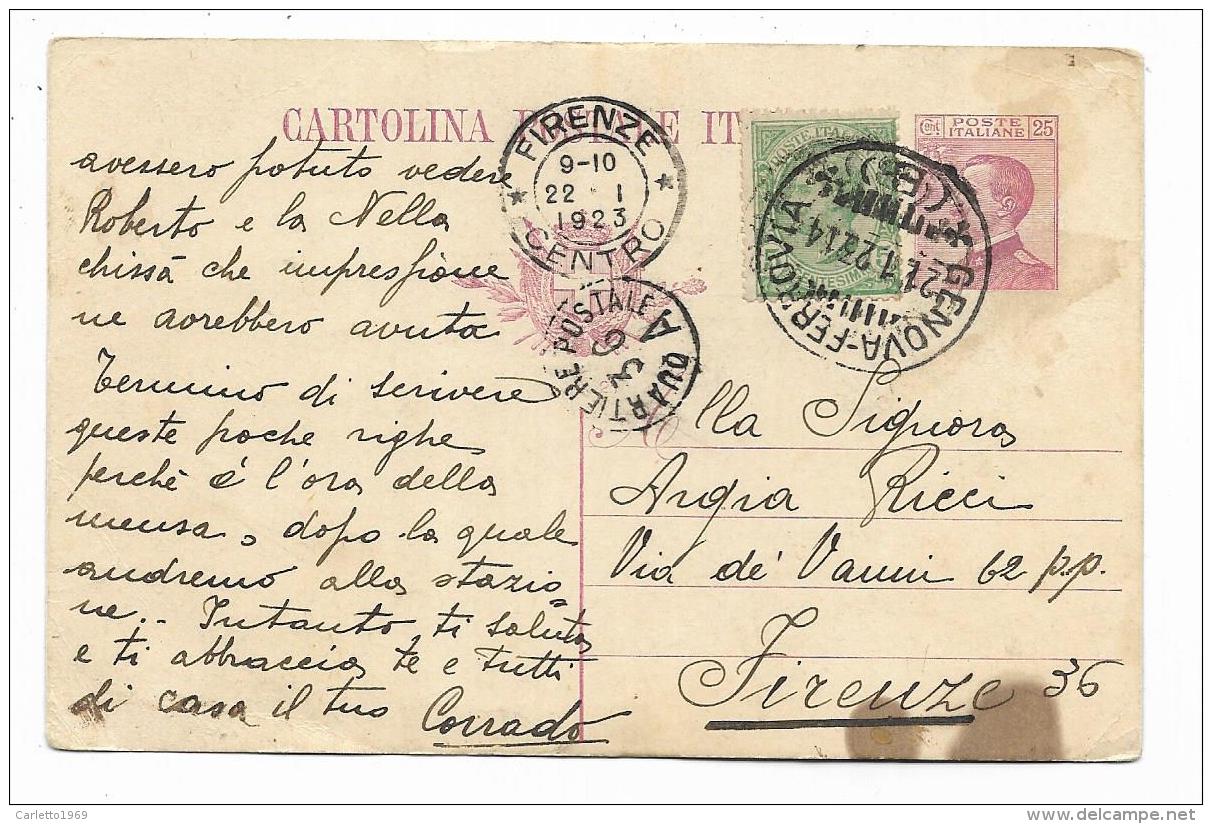 CARTOLINA POSTALE IT
FIRENZE
9-10
22 · 1
1923
CENTRO
POSTE ITALIANE
Cent 25
POSTE
ITALIANE
GENOVA-FERROVIA
(B)
QUARTIERE POSTALE
36
A
avessero potuto vedere
Roberto e la Nella
chissà che impressione
ne avrebbero avuta
Termino di scrivere
queste poche righe
perchè é l'ora della
mensa, dopo la quale
andremo alla stazio=
ne.. Intanto ti saluta
e ti abbraccia te e tutti
di casa il tuo Corrado
Alla Signora
Argia Ricci
Via dé Vanni 62 p.p.
Firenze 36
Carletto1969
delcampe.net